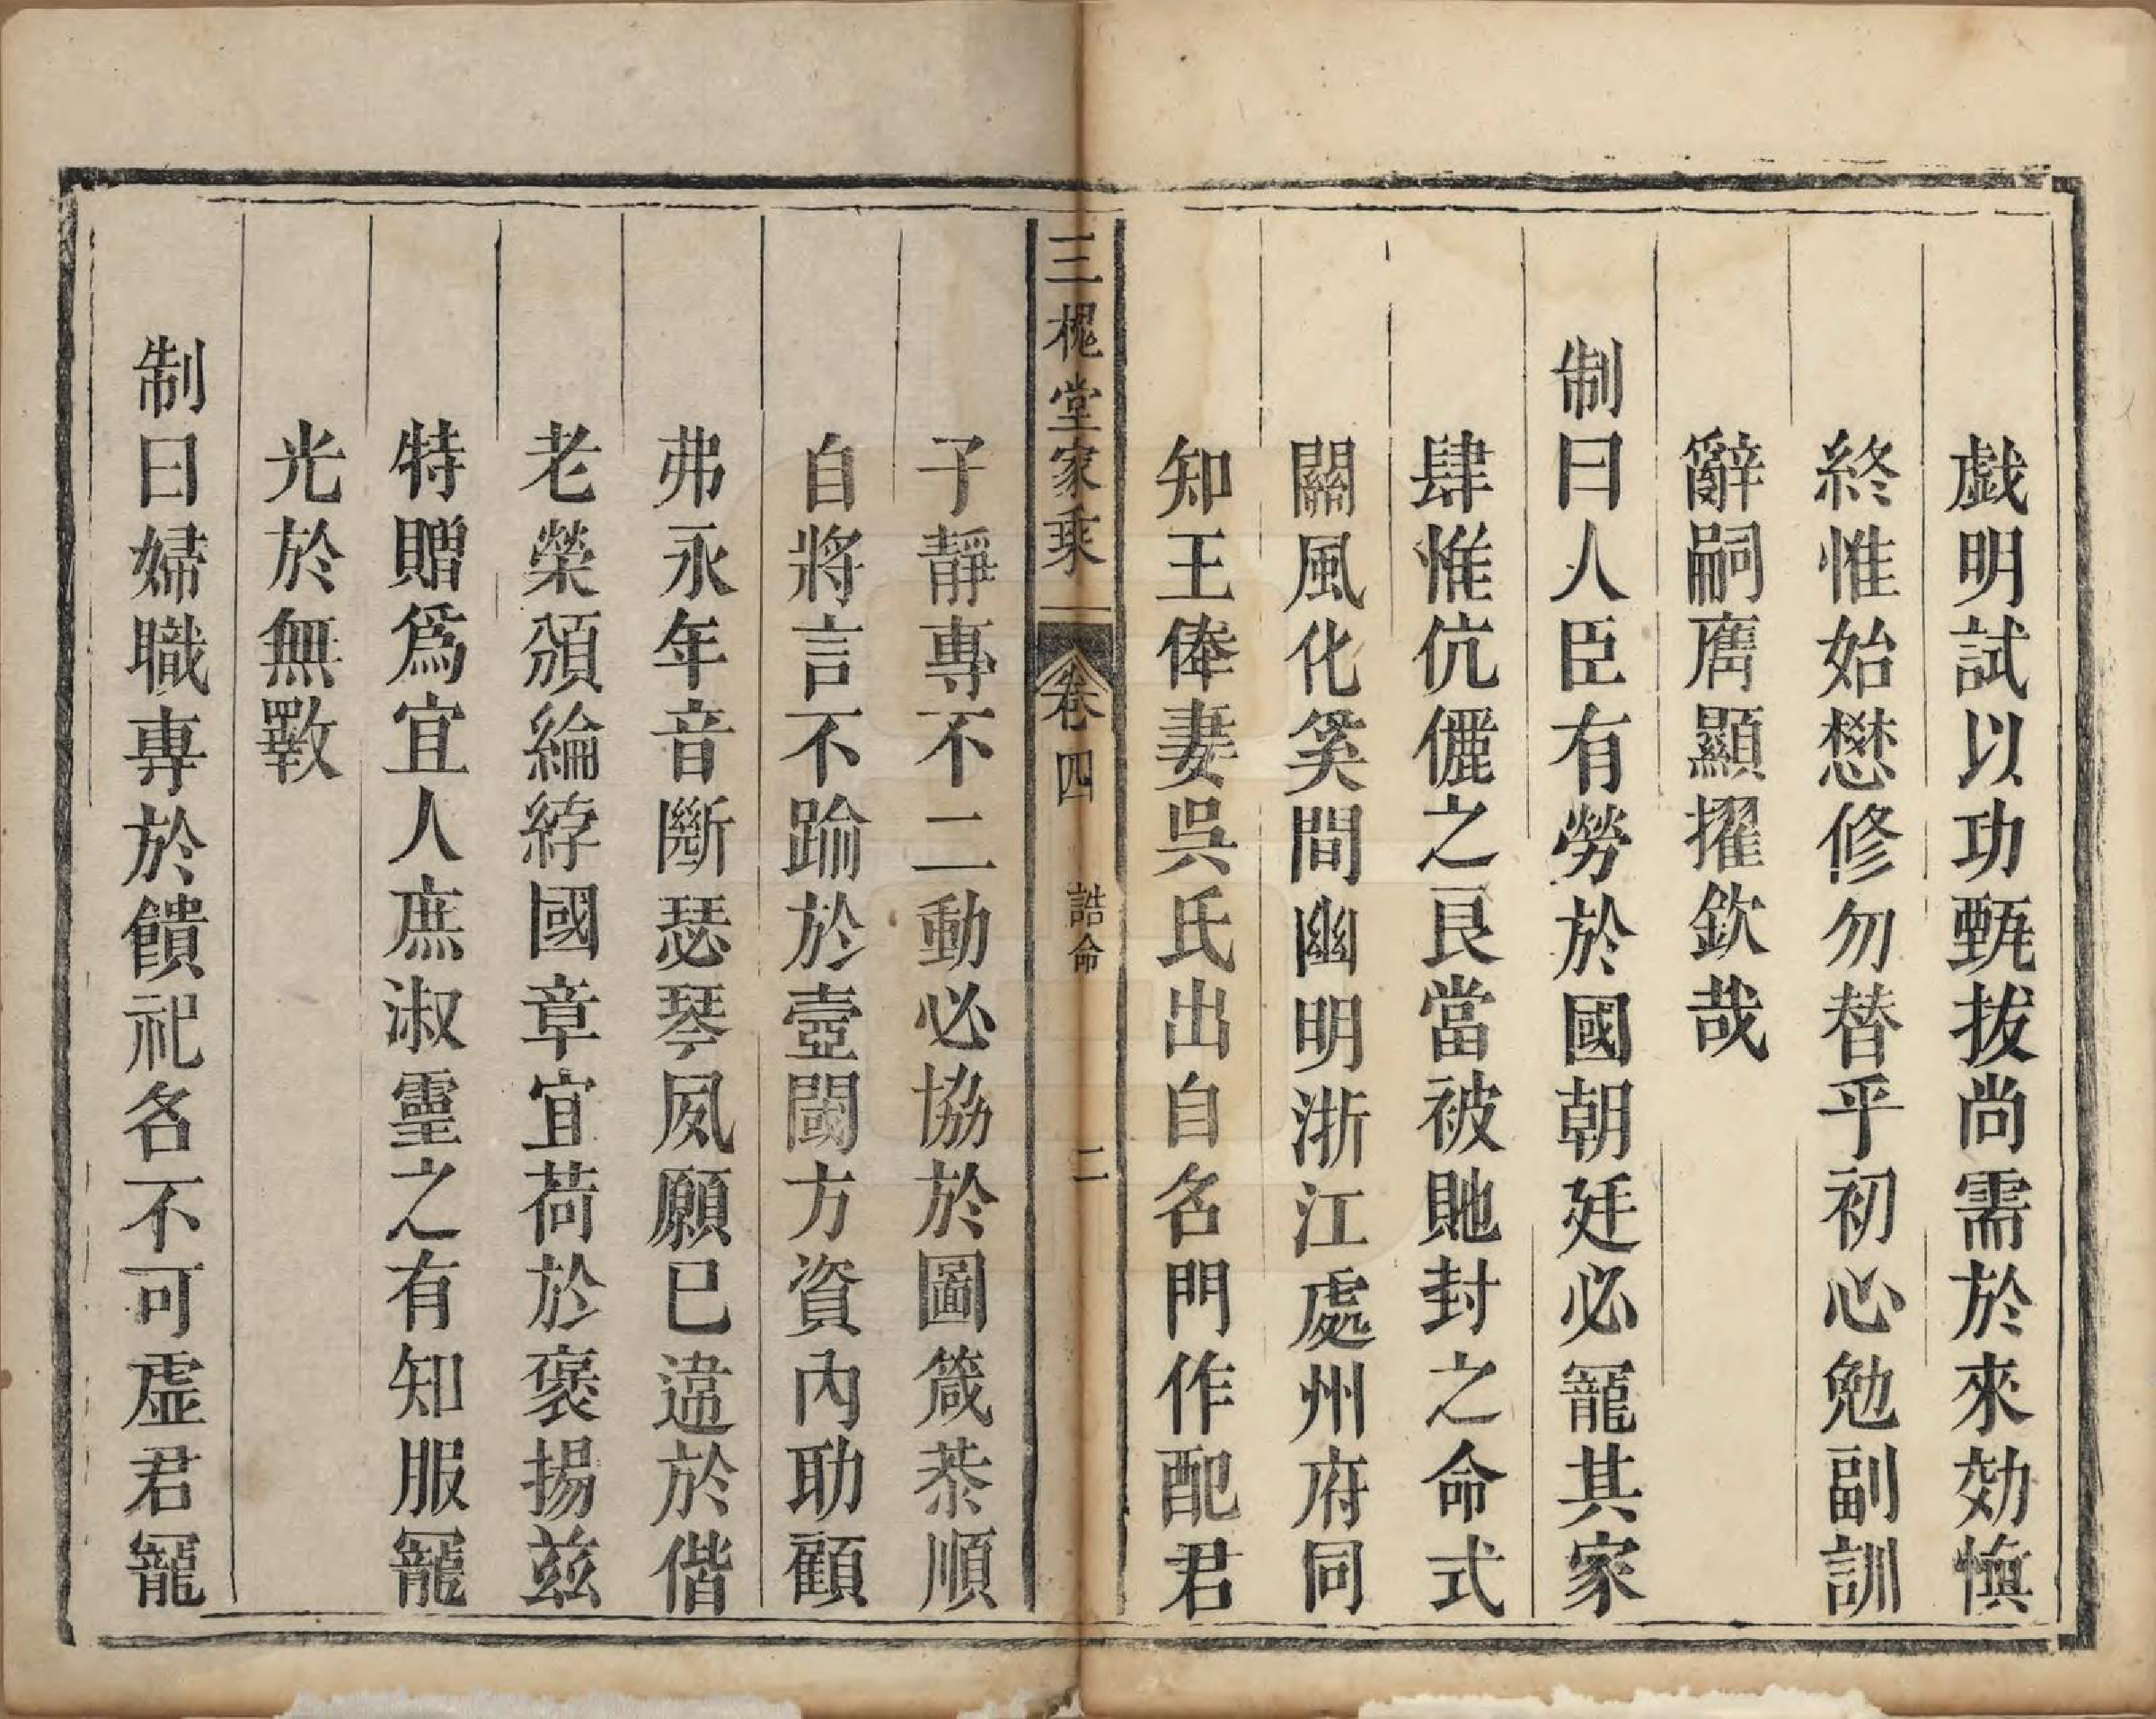 戯明試以功甄拔尚需於來効慎
終惟始懋修勿替乎初心勉副訓
辭嗣膺顯擢欽哉
制曰人臣有勞於國朝廷必寵其家
肆惟伉儷之良當被貤封之命式
關風化奚間幽明浙江處州府同
知王俸妻吳氏出自名門作配君
三槐堂家乘 卷四 誥命 二
子靜專不二動必協於圖箴恭順
自將言不踰於壼閾方資內助顧
弗永年音斷瑟琴夙願已違於偕
老榮頒綸綍國章宜荷於褒揚茲
特贈爲宜人庶淑靈之有知服寵
光於無斁
制曰婦職專於饋祀名不可虛君寵